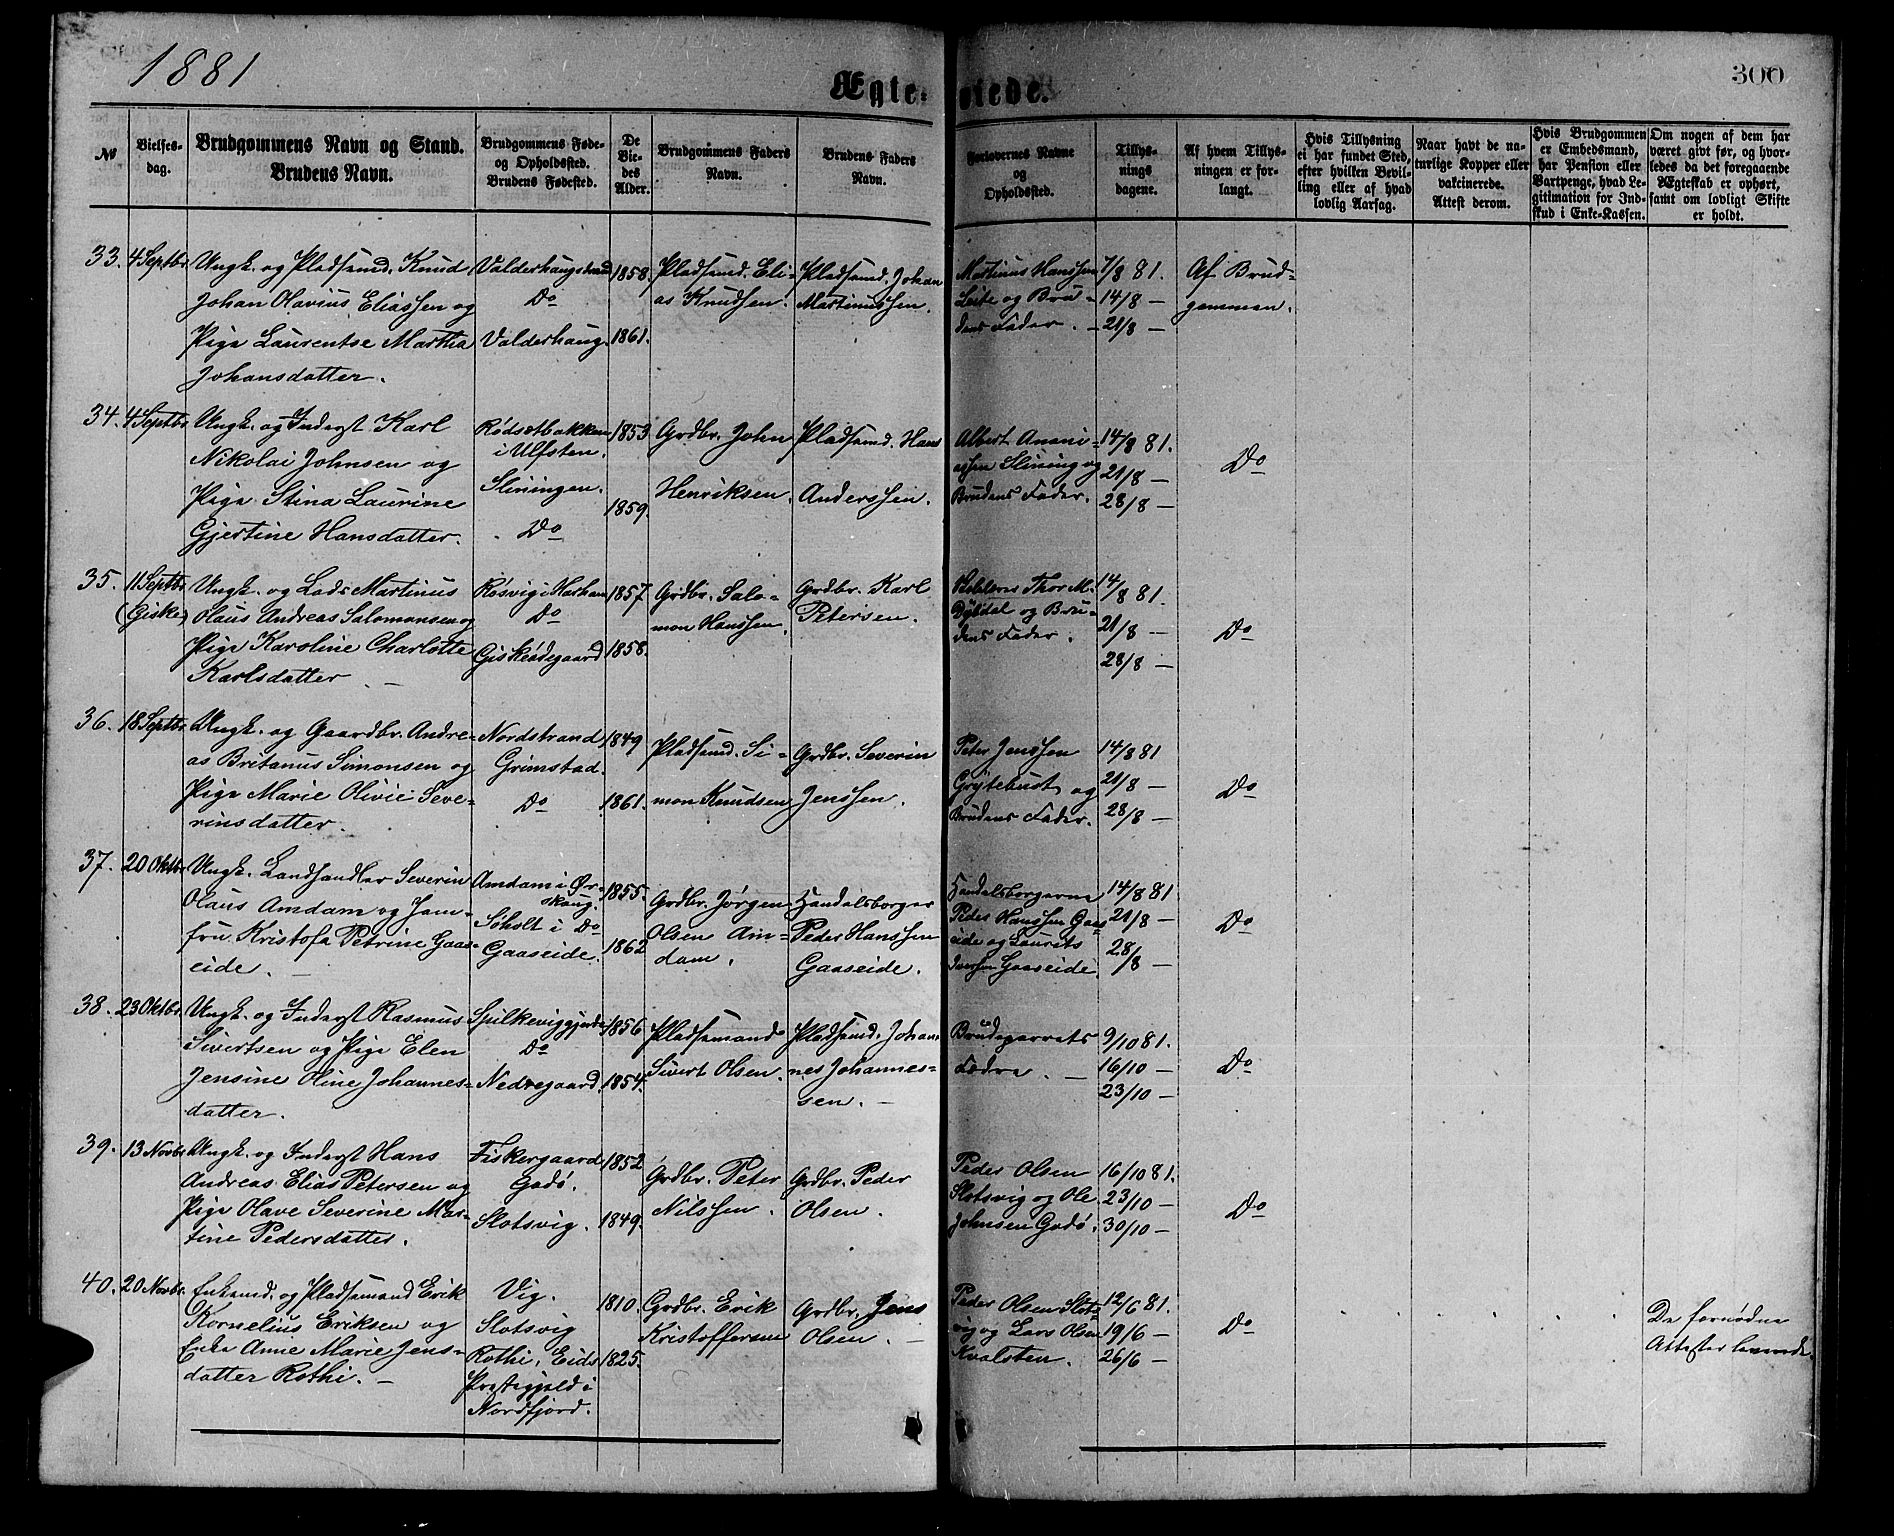 1881
Ægteviede.
300
№
Vielses-
dag.
Brudgommens Navn og Stand.
Brudens Navn.
Brudgommens Føde-
og Opholdssted.
Brudens Fødested.
De
Vie-
des
Alder.
Brudgommens Faders
Navn.
Brudens Faders
Navn.
Forlovernes Navne
og
Opholdssted.
Tillys-
nings
dagene.
Af hvem Tillys-
ningen er for-
langt.
Hvis Tillysning
ei har fundet Sted,
efter hvilken Bevil-
ling eller af hvad
lovlig Aarsag.
Naar havt de na-
turlige Kopper eller
vakcinerede.
Attest derom.
Hvis Brudgommen
er Embedsmand,
har Pension eller
Vartpenge, hvad Le-
gitimation for Ind-
skud i Enke-Kassen.
Om nogen af dem har
været givt før, og hvor-
ledes da det foregaaende
Ægteskab er ophørt,
samt om lovligt Skifte
er holdt.
33.
4 Septbr
Ungk. og Pladsmd. Knud
Johan Olavius Eliassen og
Pige Laurentse Martha
Johansdatter.
Valderhaugstrand
Do
Valderhaug.
1858.
1861.
Pladsmd. Eli-
as Knudsen.
Pladsmd. Johan
Martinussen.
Martinus Hanssen
Leite og Bru-
dens Fader. –
7/8 81.
14/8 —
21/8 —
Af Brud-
gommen.
34.
4 Septbr
Ungk. og Inderst Karl
Nikolai Johnsen og
Pige Stina Laurine
Gjertine Hansdatter.
Rødsetbakken
i Ulfsten.
Sliningen.
Do
1853
1859.
Grdbr. John
Henriksen.
Pladsmd. Hans
Anderssen.
Albert Anani-
assen Slining og
Brudens Fader.
14/8 81.
21/8 —
28/8 —
Do
35.
11 Septbr
(Giske)
Ungk. og Lods Martinus
Olaus Andreas Salomonsen og
Pige Karoline Charlotte
Karlsdatter —
Røsvig i Harham
Do
Giskeødegaard
1857.
1858.
Grdbr. Salo-
mon Hanssen.
Grdbr. Karl
Petersen.
Thor M.
Dybdal og Bru-
dens Fader.
14/8 81.
21/8 —
28/8 —
Do
36.
18 Septbr
Ungk. og Gaardbr. Andre-
as Britanus Simonsen og
Pige Marie Olivie Seve-
rinsdatter.
Nordstrand
Grimstad.
Do
1849
1861.
Pladsmd. Si-
mon Knudsen
Grdbr. Severin
Jenssen.
Peter Jenssen
Grytebust og
Brudens Fader.
14/8 81
21/8 —
28/8 —
Do
37.
20 Oktbr
Ungk. Landhandler Severin
Olaus Amdam og Jom-
fru Kristofa Petrine Gaas-
eide. —
Amdam i Ør-
skoug.
Søholt i Do
Gaaseide.
1855.
1862
Grdbr. Jørgen
Olsen Am-
dam.
Handelsborger
Peder Hanssen
Gaaseide.
Handelsborgerne
Peder Hanssen Gaas-
eide og Laurits
Gaaseide
14/8 81
21/8 —
28/8 —
Do
38.
23 Oktbr.
Ungk. og Inderst Rasmus
Sivertsen og Pige Elen
Jensine Oline Johannes-
datter.
Spilkeviggjerde
Do
Nedregaard.
1856
1854.
Pladsmand
Sivert Olsen.
Pladsmd. Johan-
nes Johannes-
sen. —
Brudeparrets
Fædre. —
9/10 81.
16/10 —
23/10 —
Do
39.
13 Novbr
Ungk. og Inderst Hans
Andreas Elias Petersen og
Pige Olave Severine Mar-
tine Pedersdatter.
Fiskergaard
Godø.
Slotsvig.
1852
1849.
Grdbr. Peter
Nilssen.
Grdbr. Peder
Olsen.
Peder Olsen
Slotsvig og Ole
Johnsen Godø.
16/10 81.
23/10 —
30/10 —
Do
40.
20 Novbr.
Enkemd. og Pladsmand Erik
Kornelius Eriksen og
Enke Anne Marie Jens-
datter Rothi. —
Vig.
Slotsvig
Rothi, Eids
Prestegjeld i
Nordfjord.
1810.
1825.
Grdbr. Erik
Kristoffersen
Grdbr. Jens
Olsen. —
Peder Olsen Slots-
vig og Lars Olsen
Kvalsten.
12/6 81.
19/6 —
26/6 —
Do
De fornødne
Attester levende.